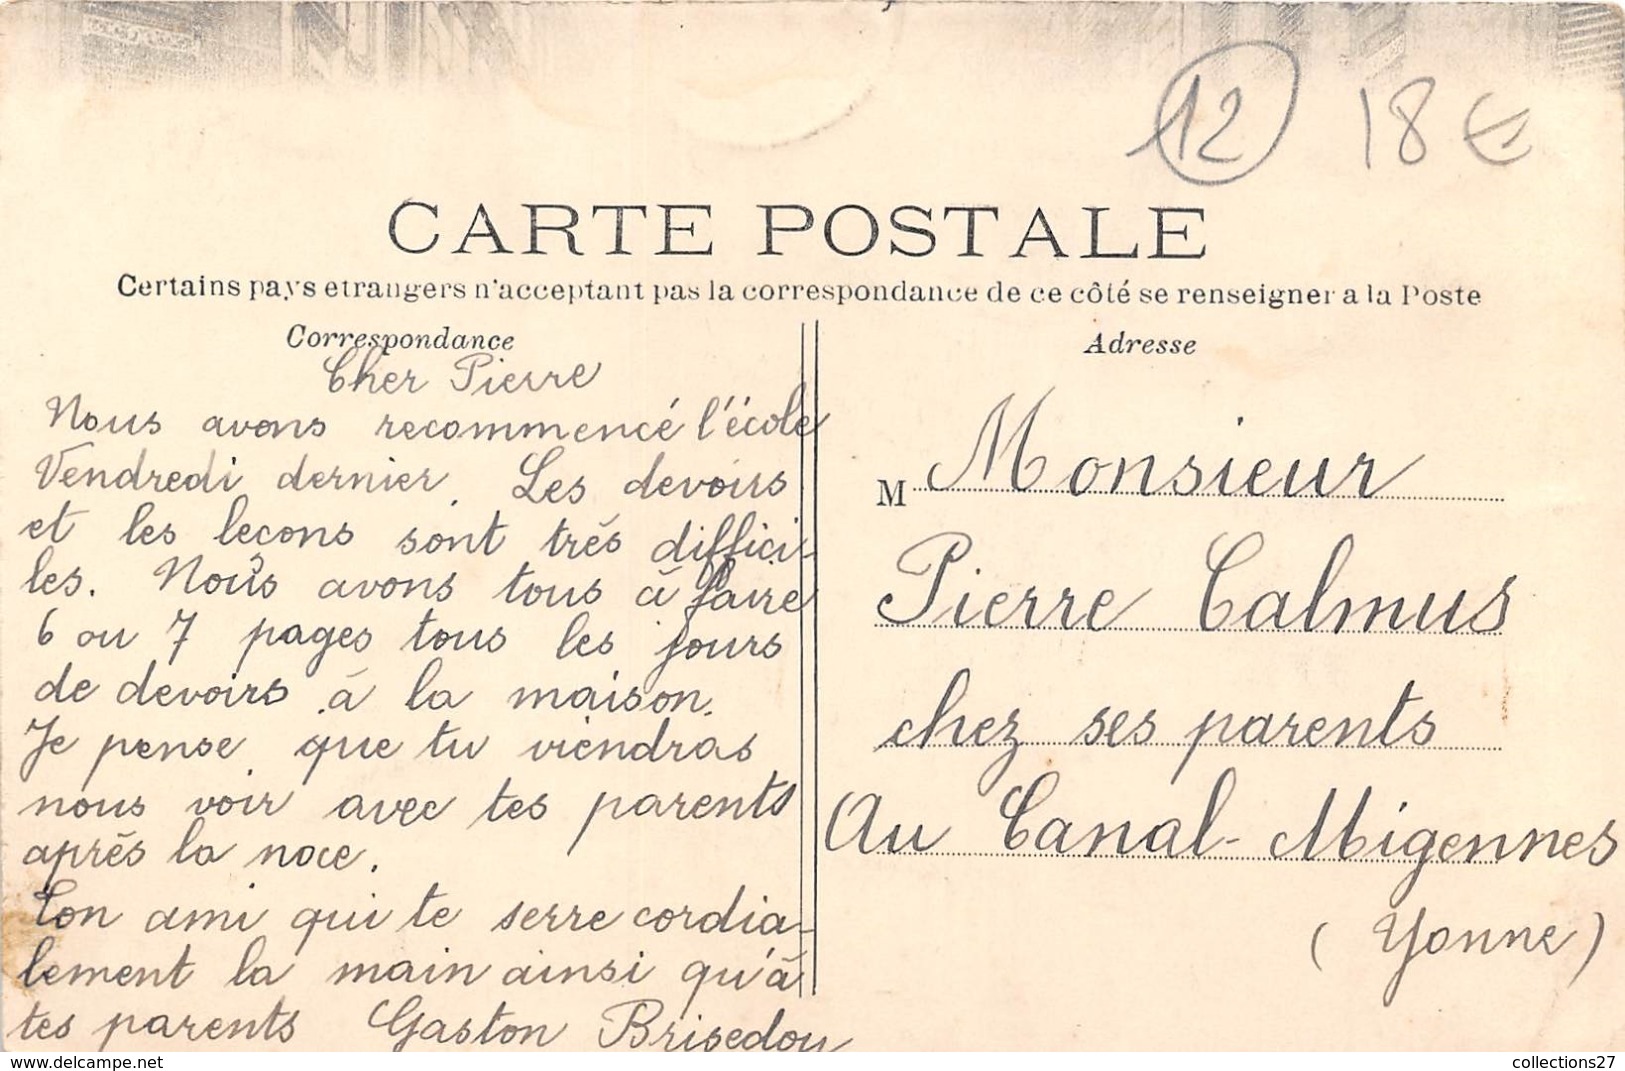 12 18 €
CARTE POSTALE
Certains pays etrangers n'acceptant pas la correspondance de ce côté se renseigner a la Poste
Correspondance
Cher Pierre
Nous avons recommencé l'école
Vendredi dernier. Les devoirs
et les leçons sont très diffici-
les. Nous avons tous à faire
6 ou 7 pages tous les jours
de devoirs à la maison.
Je pense que tu viendras
nous voir avec tes parents
après la noce.
Ton ami qui te serre cordia-
lement la main ainsi qu'à
tes parents Gaston Brisedou
Adresse
M Monsieur
Pierre Calmus
chez ses parents
Au Canal-Migennes
(Yonne)
www.delcampe.net
collections27